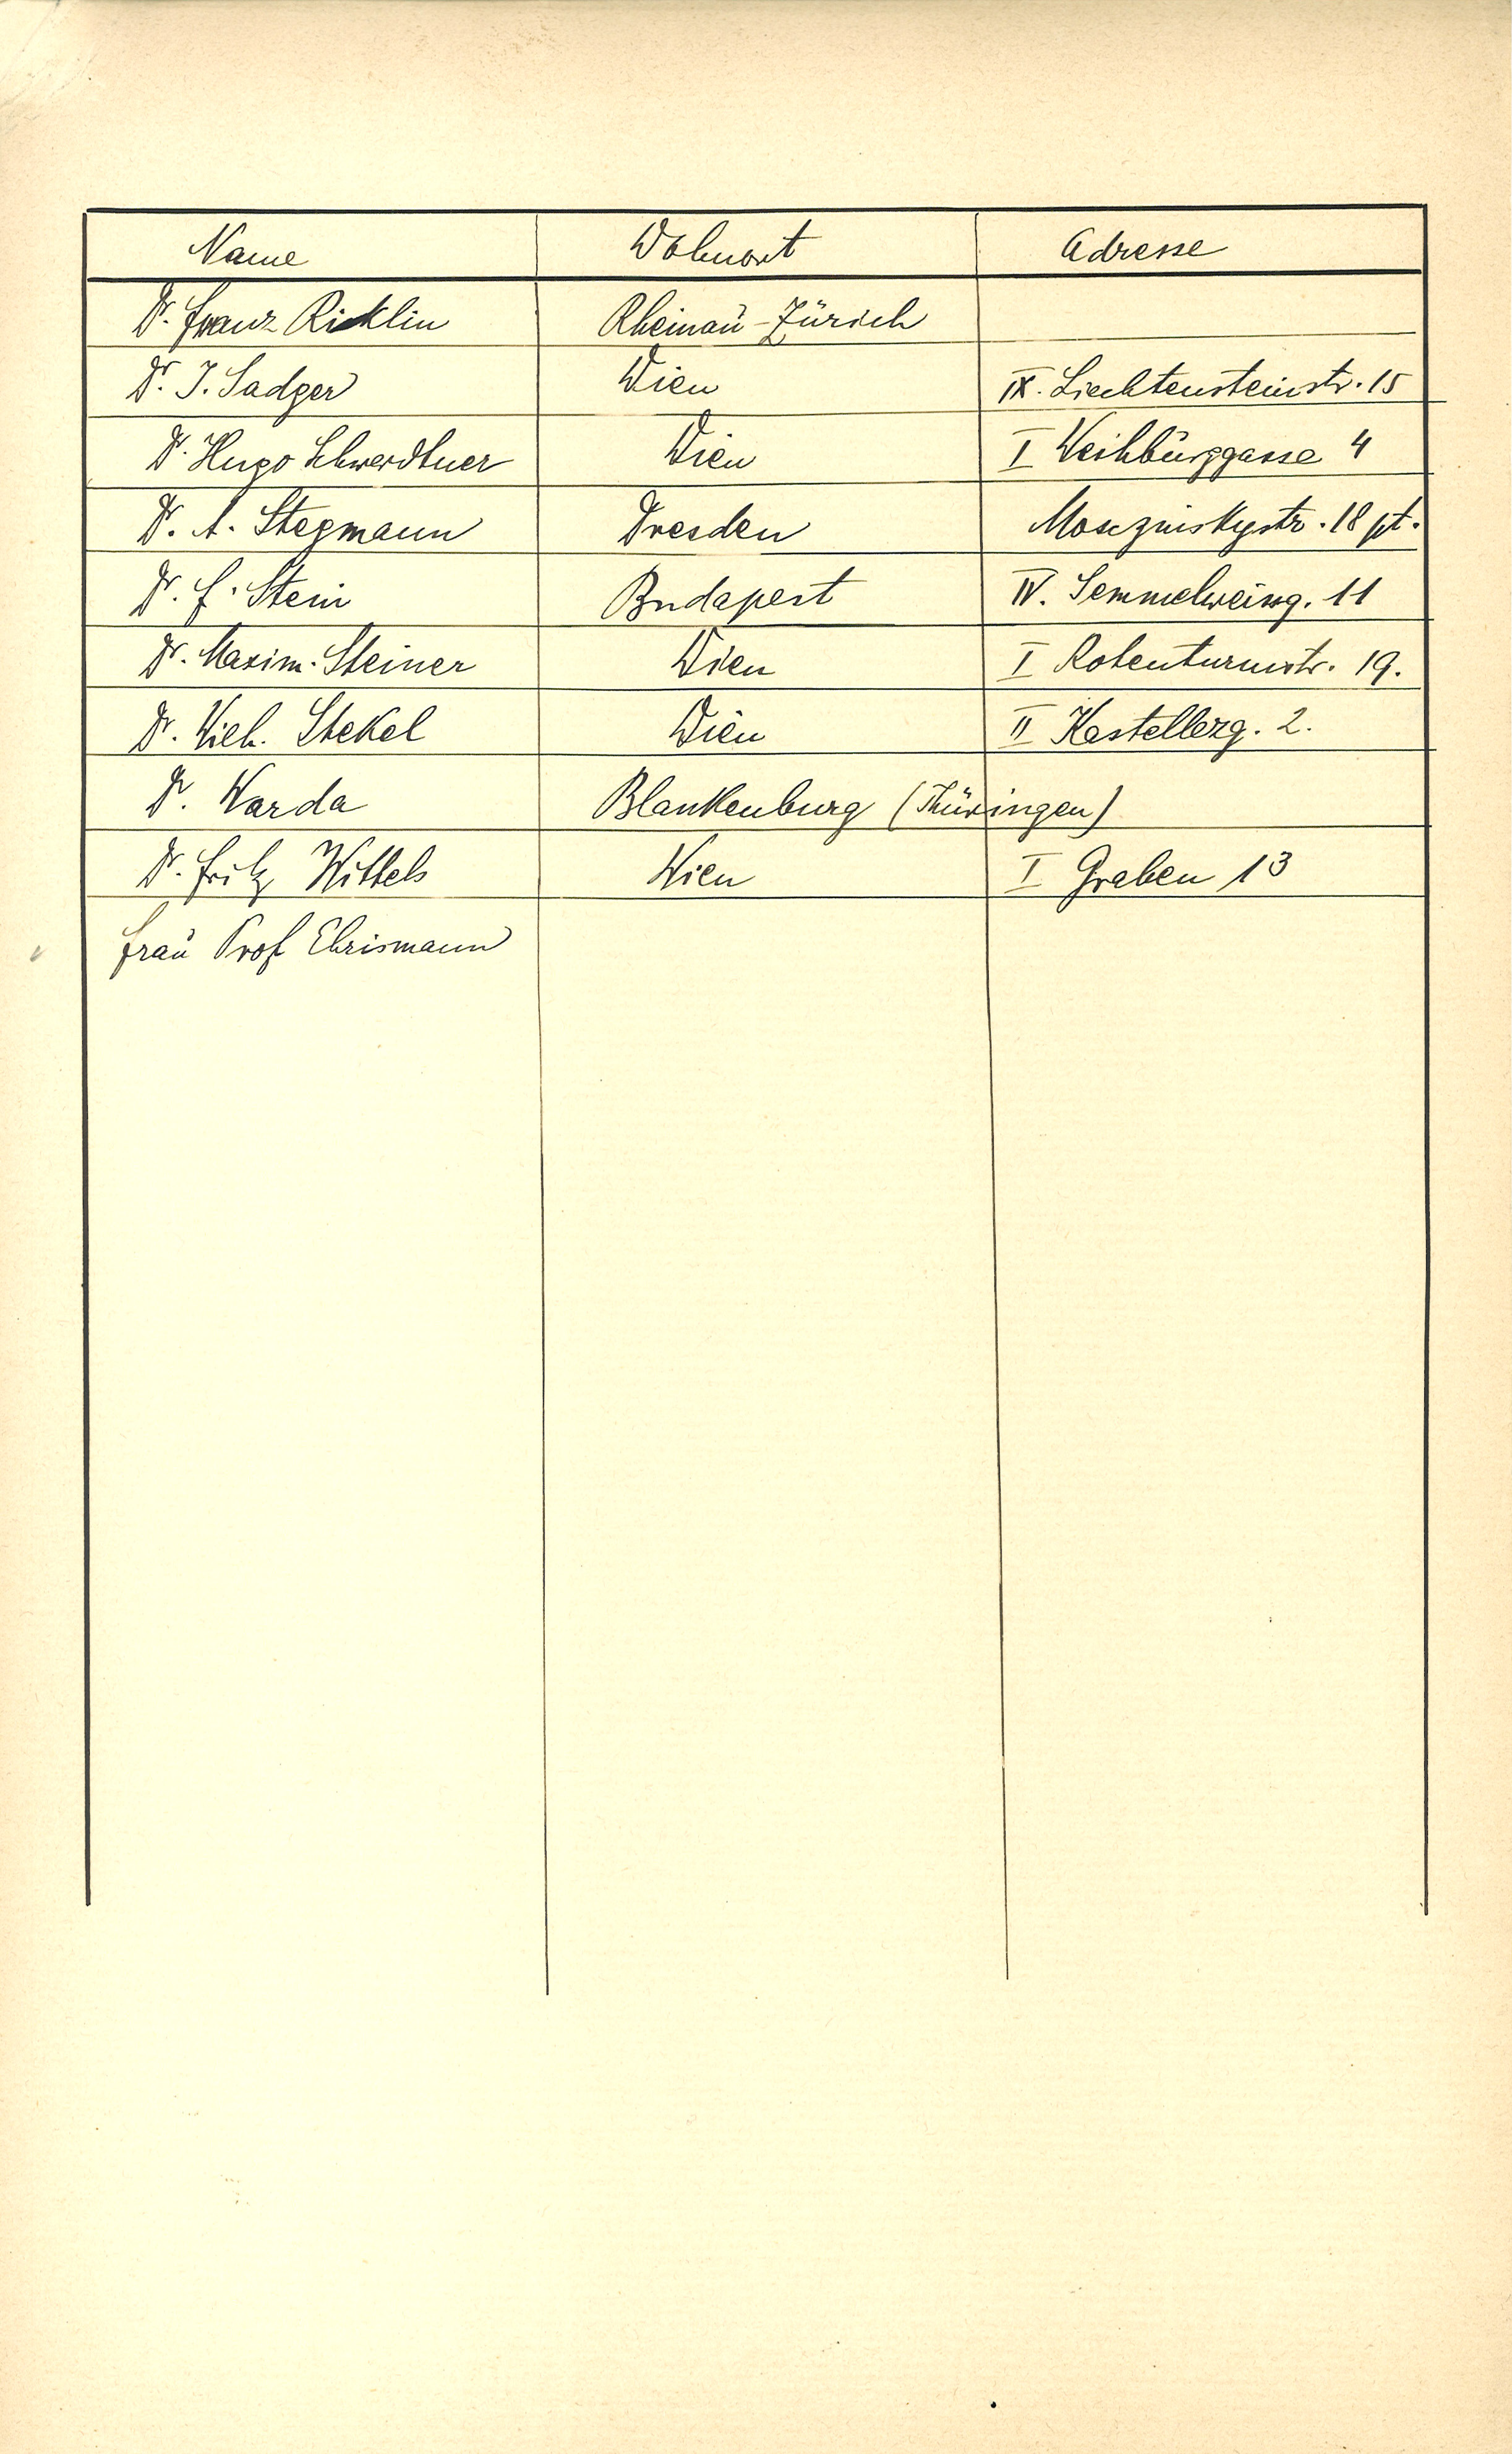 Name Wohnort Adresse
Dr. Franz Ricklin Rheinau-Zürich
Dr. J. Sadger Wien IX. Liechtensteinstr. 15
Dr. Hugo Schwerdtner Wien I Weihburggasse 4
Dr. A. Stegmann Dresden Mosczinskystr. 18 pt.
Dr. F. Stein Budapest IV. Semmelweisg. 11
Dr. Maxim. Steiner Wien I Rotenturmstr. 19.
Dr. Wilh. Stekel Wien II Kastellezg. 2.
Dr. Warda Blankenburg (Thüringen)
Dr. Fritz Wittels Wien I Graben 13
Frau Prof Ehrismann